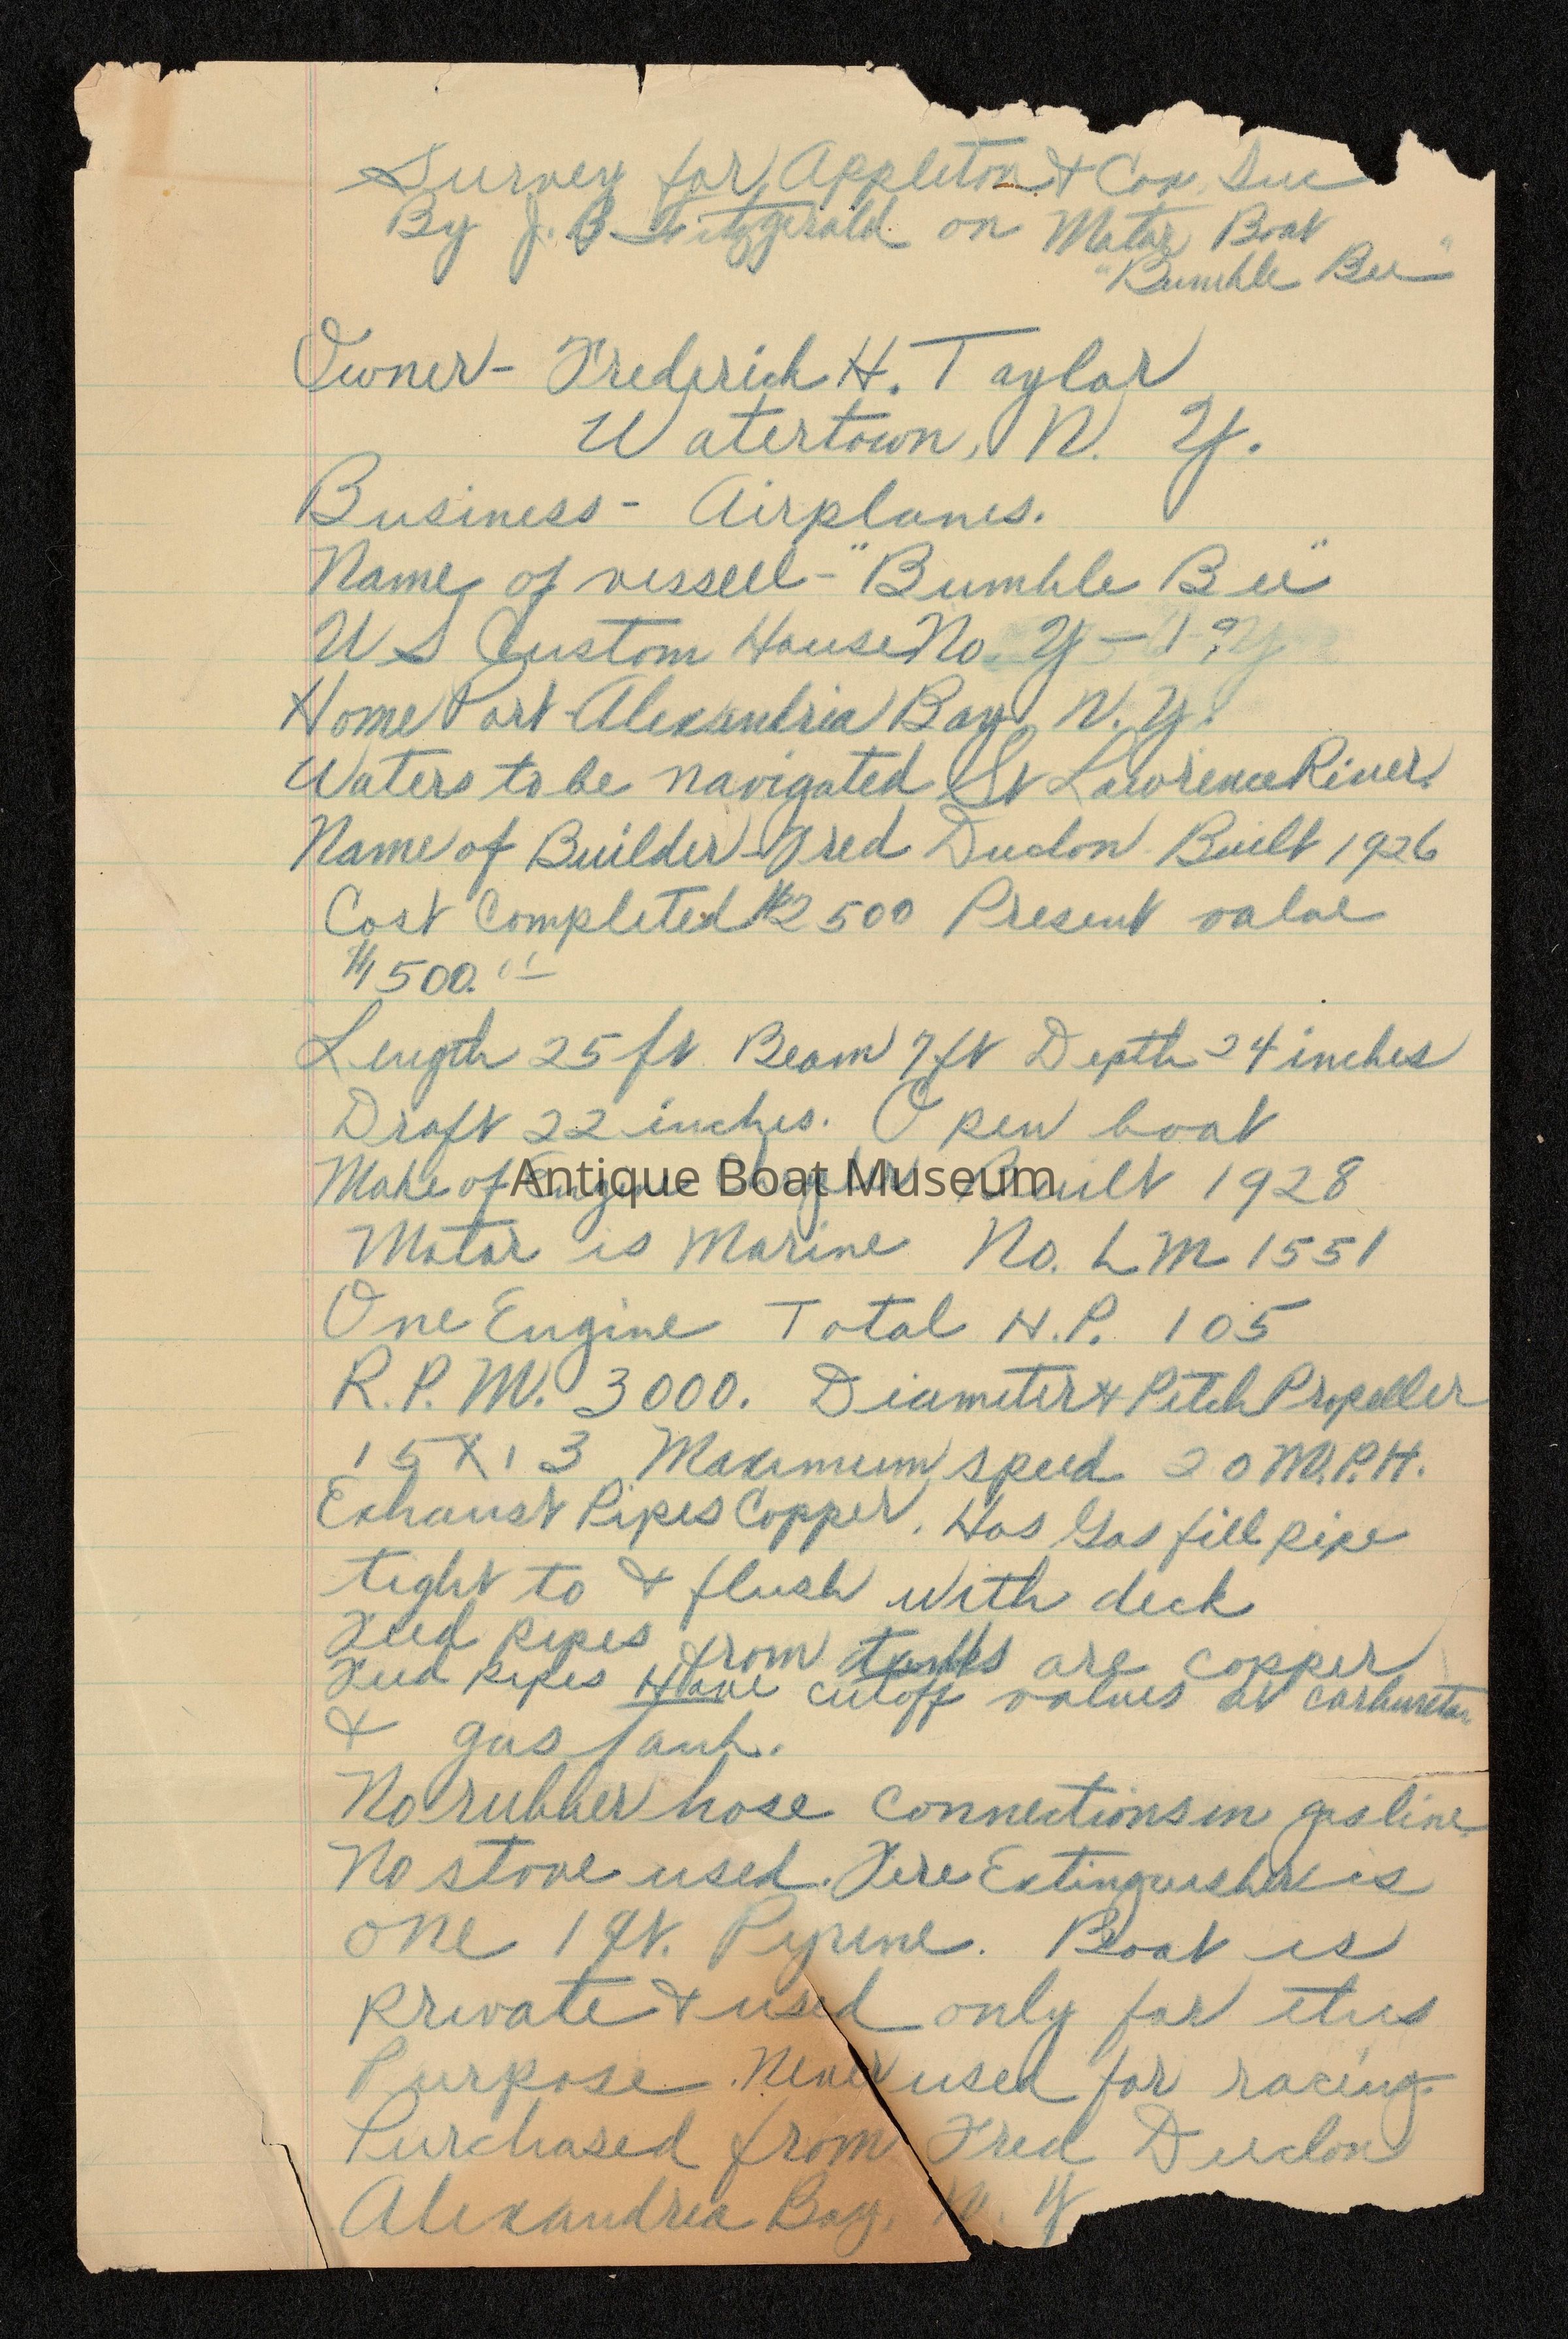 Survey for Appleton & Cox Inc
By J. B. Fitzgerald on Motor Boat
"Bumble Bee"
Owner- Frederick H. Taylor
Watertown, N. Y.
Business- Airplanes.
Name of vessell- "Bumble Bee"
U S Custom House No. Y-
Home Port-Alexandria Bay N.Y.
Waters to be navigated St Lawrence River.
Name of Builder-Fred Duclon Built 1926
Cost Completed $2500 Present value
$1500.
Length 25 ft Beam 7 ft Depth 24 inches
Draft 22 inches. Open boat
Make of Engine Chrysler Built 1928
Antique Boat Museum
Motor is Marine No. LM 1551
One Engine Total H.P. 105
R.P.M. 3000. Diameter & Pitch Propeller
15 X 13 Maximum speed 20 M.P.H.
Exhaust Pipes Copper. Has Gas fill pipe
tight to & flush with deck
Feed pipes from tanks are copper
Feed pipes Have cutoff valves at carburetor
& gas tank.
No rubber hose connections in gas line
No stove used. Fire Extinguisher is
one 1 qt. Pyrene. Boat is
private & used only for this
Purpose. Never used for racing.
Purchased from Fred Duclon
Alexandria Bay, N. Y